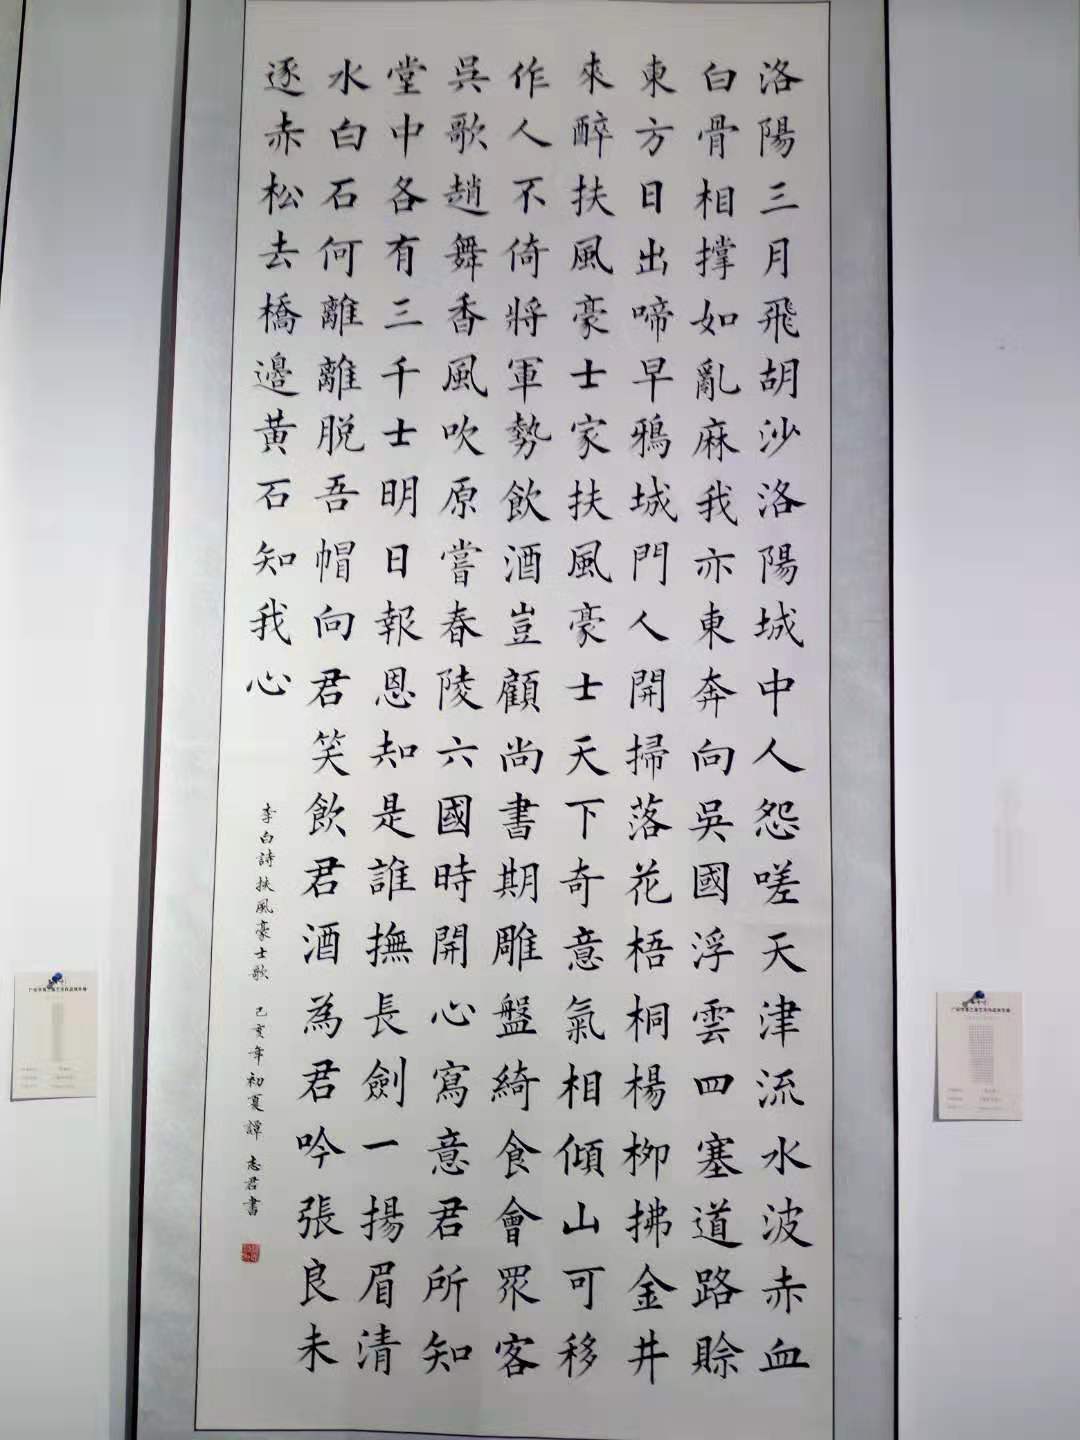 洛陽三月飛胡沙洛陽城中人怨嗟天津流水波赤血
白骨相撐如亂麻我亦東奔向吳國浮雲四塞道路賒
東方日出啼早鴉城門人開掃落花梧桐楊柳拂金井
來醉扶風豪士家扶風豪士天下奇意氣相傾山可移
作人不倚將軍勢飲酒豈顧尚書期雕盤綺食會眾客
吳歌趙舞香風吹原嘗春陵六國時開心寫意君所知
堂中各有三千士明日報恩知是誰撫長劍一揚眉清
水白石何離離脫吾帽向君笑飲君酒為君吟張良未
逐赤松去橋邊黃石知我心
李白詩扶風豪士歌 己亥年初夏譚志君書